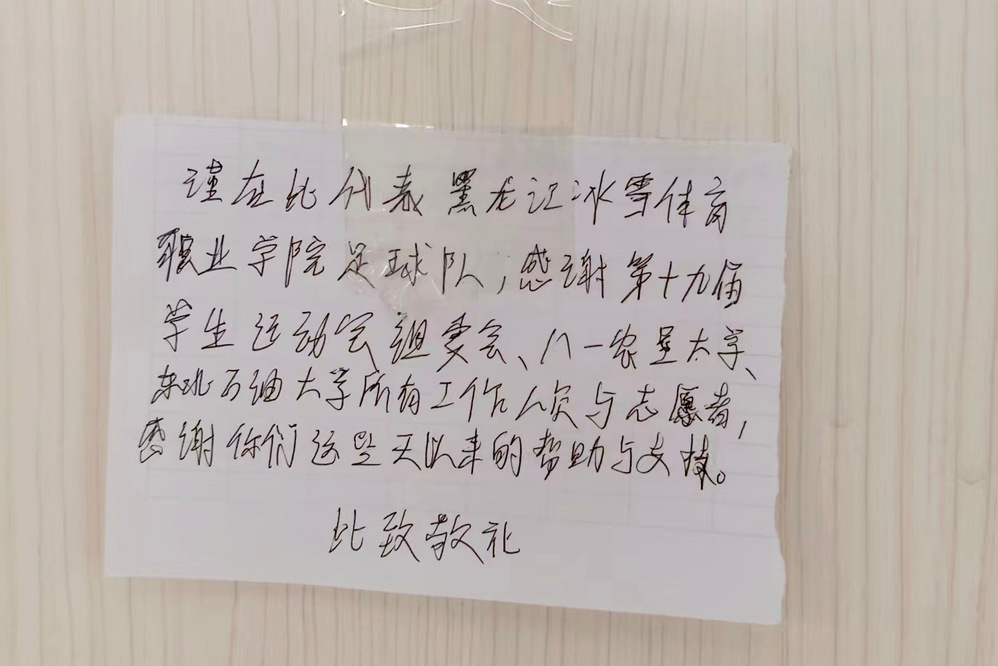 谨在此代表黑龙江冰雪体育
职业学院足球队,感谢第十九届
学生运动会组委会、八一农垦大学、
东北石油大学所有工作人员与志愿者,
感谢你们这些天以来的帮助与支持。
此致敬礼